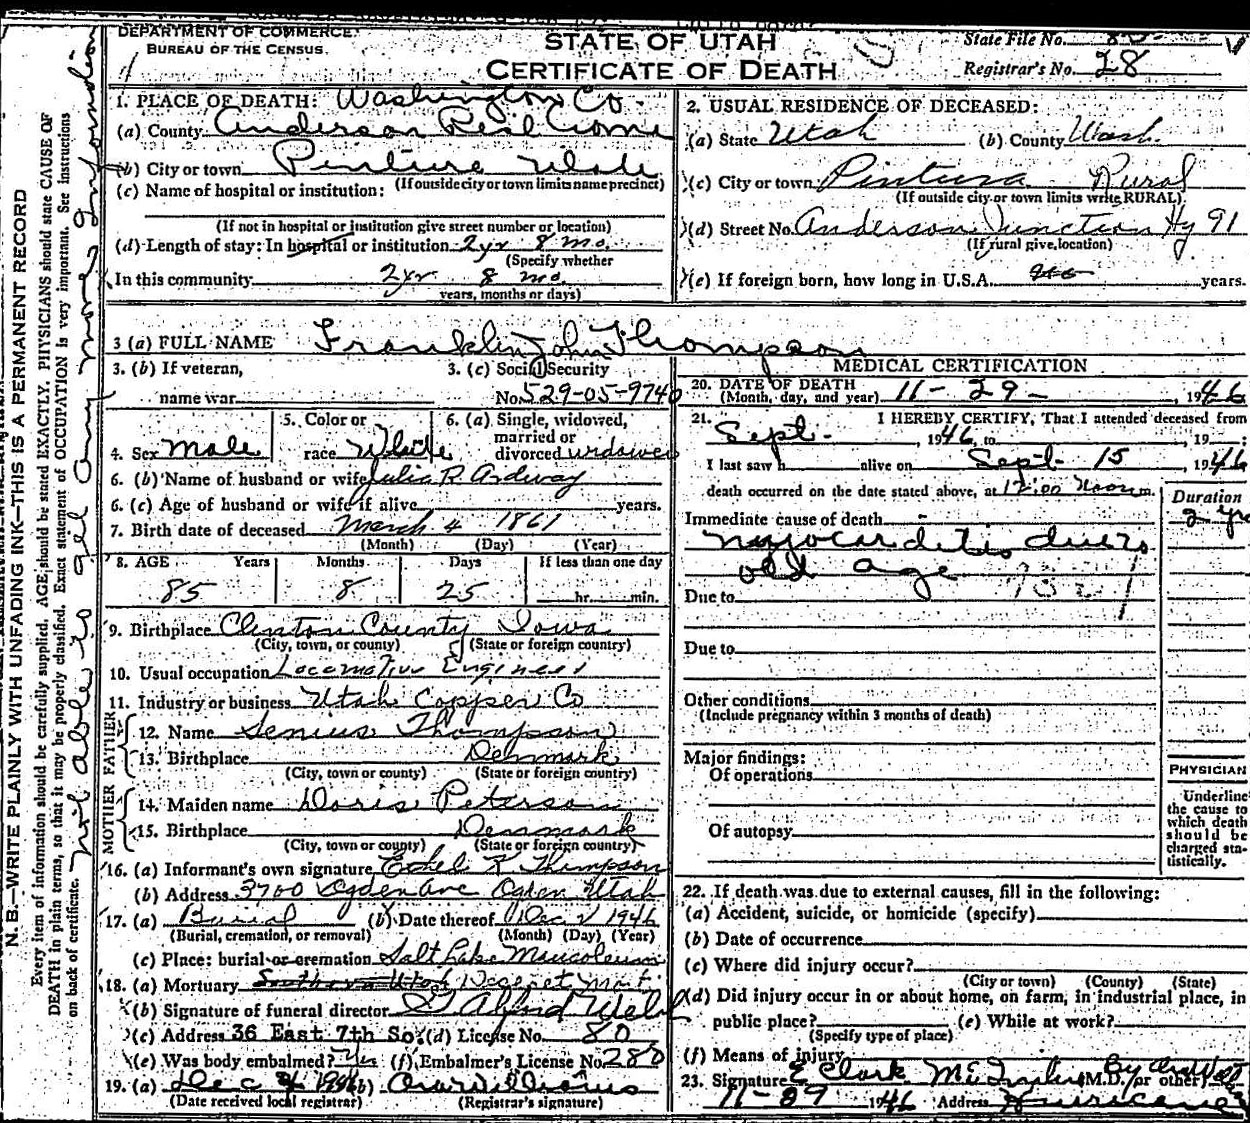 DEPARTMENT OF COMMERCE
BUREAU OF THE CENSUS.
STATE OF UTAH
CERTIFICATE OF DEATH
State File No.
Registrar's No. 28
N. B.—WRITE PLAINLY WITH UNFADING INK—THIS IS A PERMANENT RECORD
Every item of information should be carefully supplied. AGE should be stated EXACTLY. PHYSICIANS should state CAUSE OF
DEATH in plain terms, so that it may be properly classified. Exact statement of OCCUPATION is very important. See instructions
on back of certificate.
not able to get any more information
1. PLACE OF DEATH: Washington Co.
(a) County Anderson Rest Home
(b) City or town Pintura Utah
(If outside city or town limits name precinct)
(c) Name of hospital or institution:
(If not in hospital or institution give street number or location)
(d) Length of stay: In hospital or institution 2 yr 8 mo.
(Specify whether
In this community 2 yr 8 mo.
years, months or days)
2. USUAL RESIDENCE OF DECEASED:
(a) State Utah (b) County Wash.
(c) City or town Pintura Rural
(If outside city or town limits write RURAL)
(d) Street No. Anderson Junction Hy 91
(If rural give location)
(e) If foreign born, how long in U.S.A. years.
3 (a) FULL NAME Franklin John Thompson
3. (b) If veteran,
name war
3. (c) Social Security
No. 529-05-9740
4. Sex Male
5. Color or
race White
6. (a) Single, widowed,
married or
divorced widower
6. (b) Name of husband or wife Julia R Ardway
6. (c) Age of husband or wife if alive years.
7. Birth date of deceased March 4 1861
(Month) (Day) (Year)
8. AGE Years Months Days If less than one day
85 8 25 hr. min.
9. Birthplace Clinton County Iowa
(City, town, or county) (State or foreign country)
10. Usual occupation Locomotive Engineer
11. Industry or business Utah Copper Co
FATHER
12. Name Senius Thompson
13. Birthplace Denmark
(City, town or county) (State or foreign country)
MOTHER
14. Maiden name Doris Peterson
15. Birthplace Denmark
(City, town or county) (State or foreign country)
16. (a) Informant's own signature Ethel K Thompson
(b) Address 3700 Ogden Ave Ogden Utah
17. (a) Burial (b) Date thereof Dec 2 1946
(Burial, cremation, or removal) (Month) (Day) (Year)
(c) Place: burial or cremation Salt Lake Mausoleum
18. (a) Mortuary Southern Utah Deseret Mort
(b) Signature of funeral director
(c) Address 36 East 7th So. (d) License No. 80
(e) Was body embalmed? Yes (f) Embalmer's License No. 280
19. (a) Dec 2 1946 (b)
(Date received local registrar) (Registrar's signature)
MEDICAL CERTIFICATION
20. DATE OF DEATH
(Month, day, and year) 11-29- , 1946
21. I HEREBY CERTIFY, That I attended deceased from
Sept. , 1946, to , 19 ;
I last saw h alive on Sept 15 , 1946
death occurred on the date stated above, at 12:00 Noon m.
Duration
2 yrs
Immediate cause of death
myocarditis due to
old age
Due to
Due to
Other conditions
(Include pregnancy within 3 months of death)
Major findings:
Of operations
Of autopsy
PHYSICIAN
Underline
the cause to
which death
should be
charged sta-
tistically.
22. If death was due to external causes, fill in the following:
(a) Accident, suicide, or homicide (specify)
(b) Date of occurrence
(c) Where did injury occur?
(City or town) (County) (State)
(d) Did injury occur in or about home, on farm, in industrial place, in
public place? (e) While at work?
(Specify type of place)
(f) Means of injury
23. Signature Clark (M.D. or other)
1946 Address Hurricane